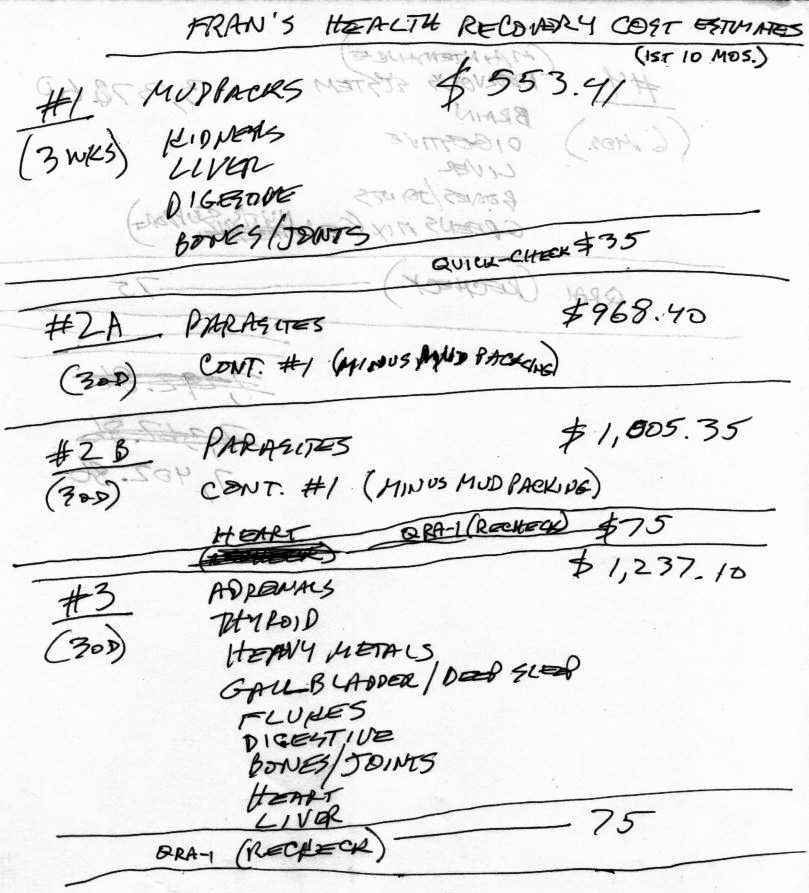 FRAN'S HEALTH RECOVERY COST ESTIMATES
(1ST 10 MOS.)
#1 MUDPACKS $553.41
(3 WKS) KIDNEYS
LIVER
DIGESTIVE
BONES/JOINTS
QUICK-CHECK $35
#2A PARASITES $968.40
(30D) CONT. #1 (MINUS MUD PACKING)
#2B PARASITES $1,005.35
(30D) CONT. #1 (MINUS MUD PACKING)
HEART QRA-1 (RECHECK) $75
#3 ADRENALS $1,237.10
(30D) THYROID
HEAVY METALS
GALLBLADDER/DEEP SLEEP
FLUKES
DIGESTIVE
BONES/JOINTS
HEART
LIVER
QRA-1 (RECHECK) 75